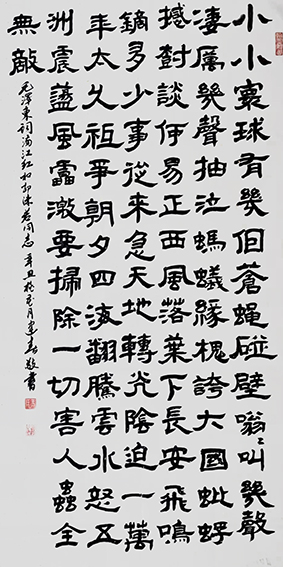 小小寰球有幾個蒼蠅碰壁嗡〻叫幾聲
凄厲幾聲抽泣螞蟻緣槐誇大國蚍蜉
撼樹談何易正西風落葉下長安飛鳴
鏑多少事從來急天地轉光陰迫一萬
年太久祇爭朝夕四海翻騰雲水怒五
洲震盪風雷激要掃除一切害人蟲全
無敵
毛澤東詞滿江紅和郭沫若同志 辛丑 月 春敬書